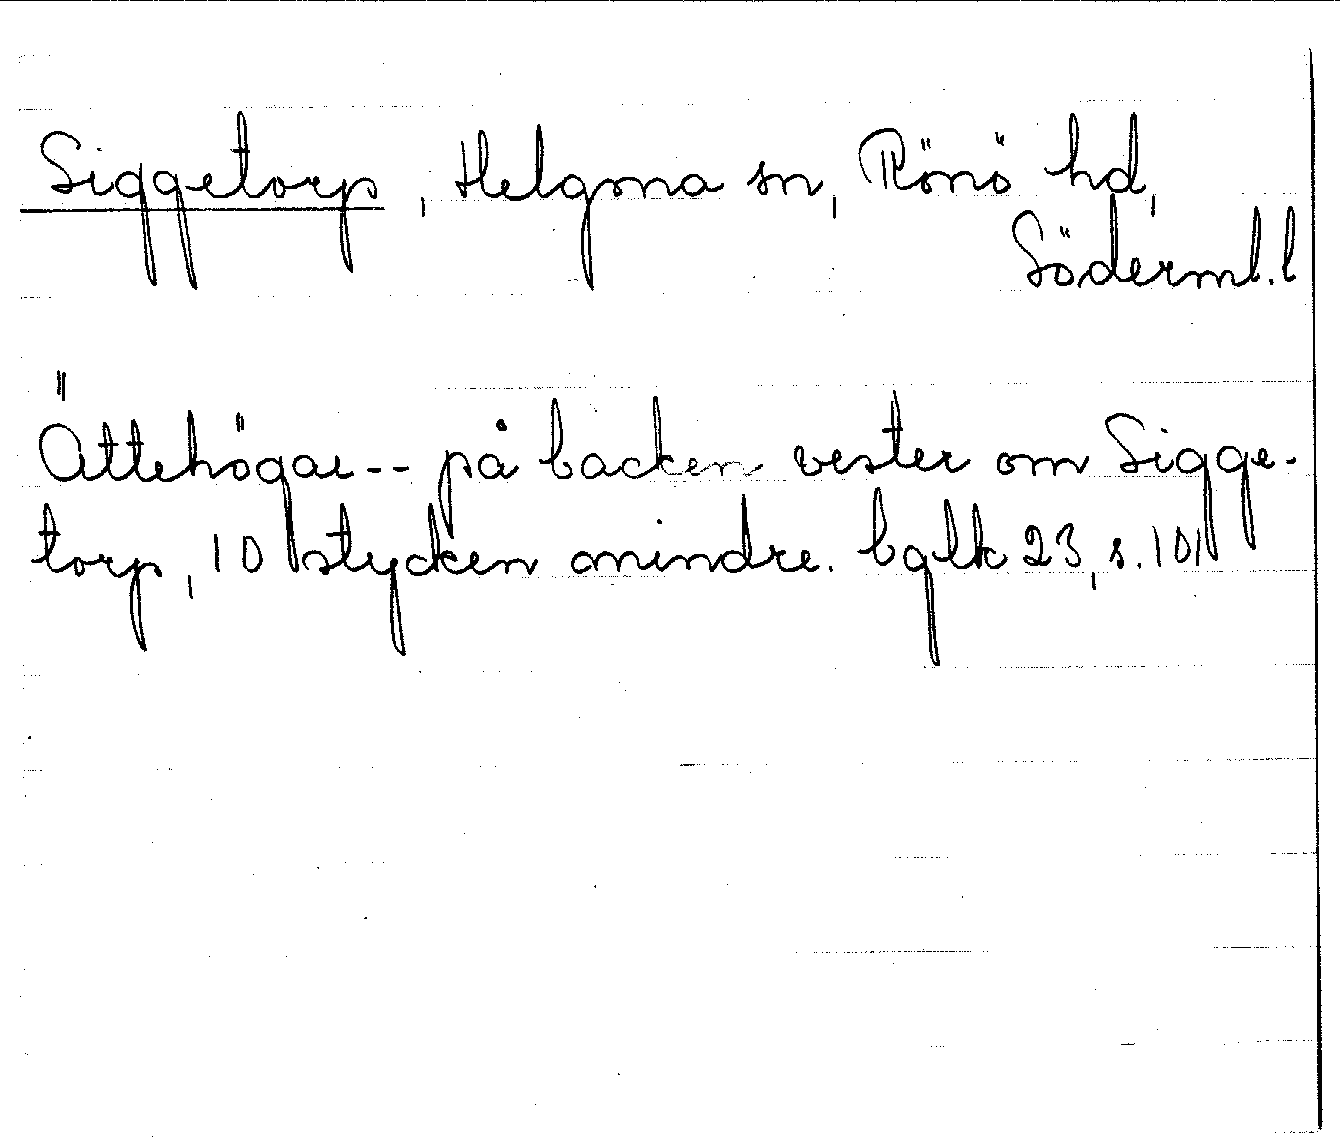 Siggetorp, Helgona sn, Rönö hd,
Söderml. l
Ättehögar -- på backen vester om Sigge-
torp, 10 stycken mindre. bglk 23, s. 101